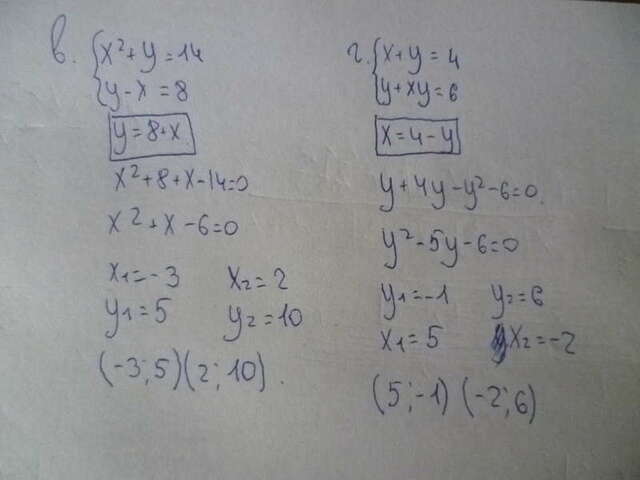 в. { x² + y = 14
y - x = 8
y = 8 + x
x² + 8 + x - 14 = 0
x² + x - 6 = 0
x₁ = -3 x₂ = 2
y₁ = 5 y₂ = 10
(-3; 5) (2; 10).
г. { x + y = 4
y + xy = 6
x = 4 - y
y + 4y - y² - 6 = 0.
y² - 5y - 6 = 0
y₁ = -1 y₂ = 6
x₁ = 5 x₂ = -2
(5; -1) (-2; 6)